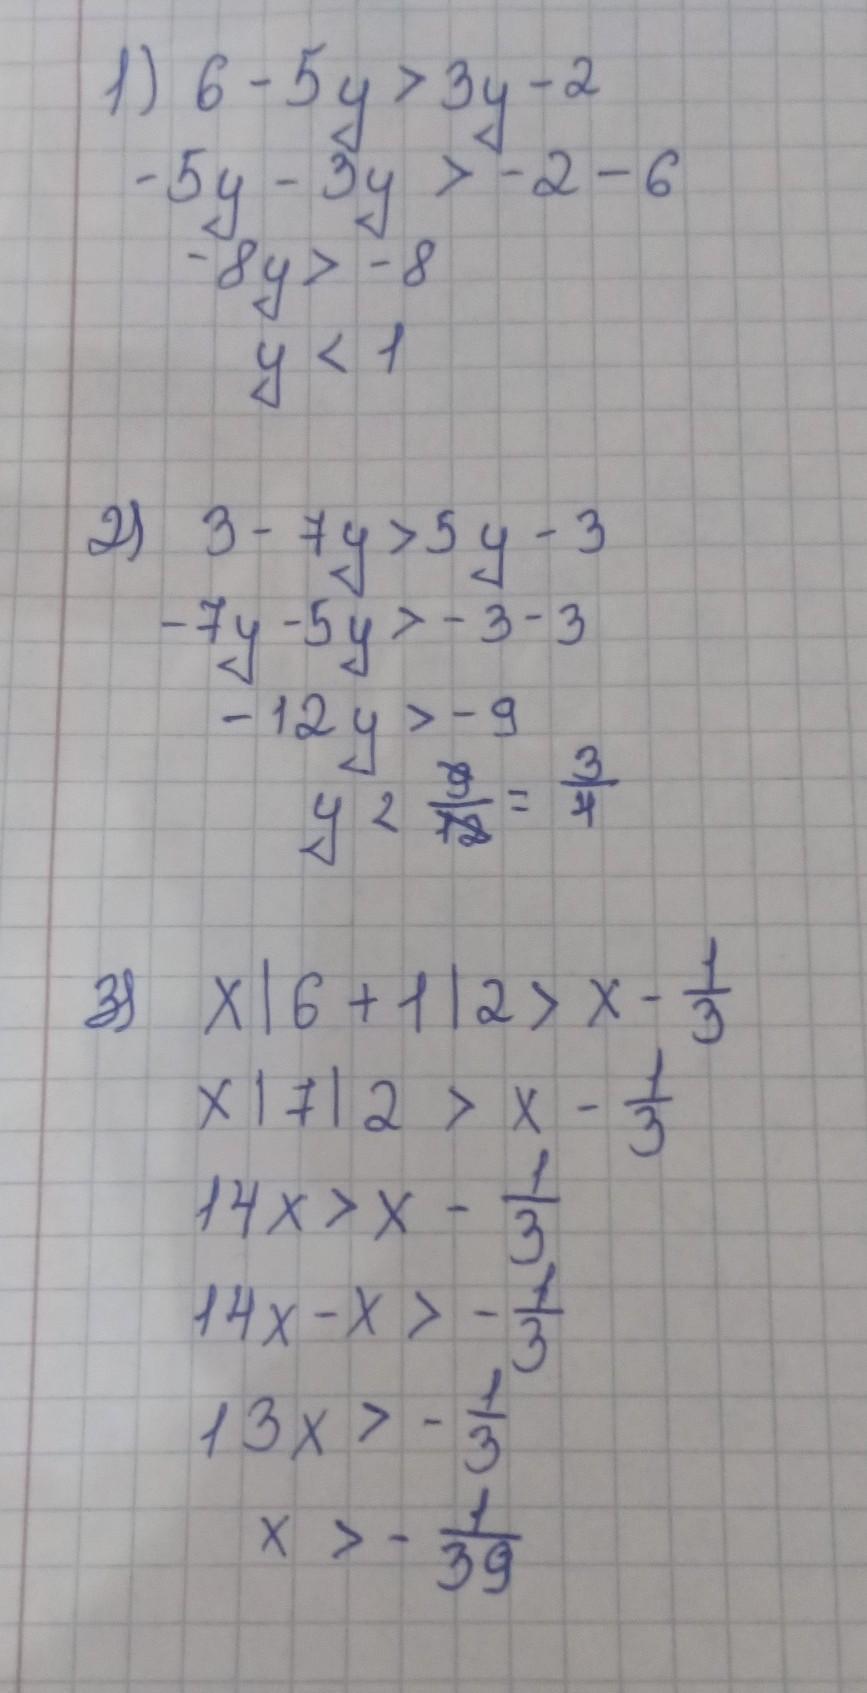 1) 6 - 5y > 3y - 2
-5y - 3y > -2 - 6
-8y > -8
y < 1
2) 3 - 7y > 5y - 3
-7y - 5y > -3 - 3
-12y > -9
y < 9/12 = 3/4
3) x|6 + 1|2 > x - 1/3
x|7|2 > x - 1/3
14x > x - 1/3
14x - x > -1/3
13x > -1/3
x > -1/39